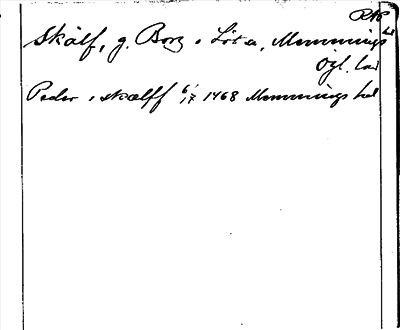 Skälf, g. Borg o Lösa, Memmings hd
Ögl. län
Peder i skælff 6/17 1468 Memmings hd